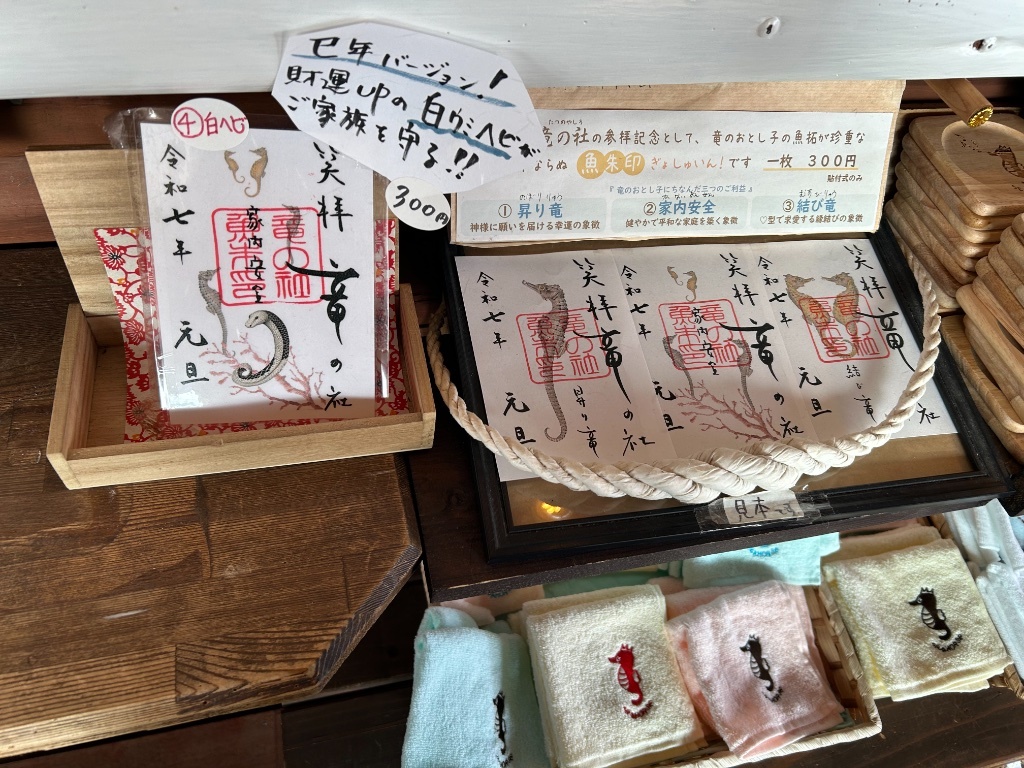 巳年バージョン!
財運UPの白ウミヘビが
ご家族を守る!!
④白ヘビ
300円
笑拝 竜の社
竜の社
魚朱印
家内安全
令和七年 元旦
たつのやしろ
竜の社の参拝記念として、竜のおとし子の魚拓が珍重な
ならぬ 魚朱印 ぎょしゅいん!です 一枚 300円
貼付式のみ
『竜のおとし子にちなんだ三つのご利益』
のぼりりゅう
①昇り竜
神様に願いを届ける幸運の象徴
かないあんぜん
②家内安全
健やかで平和な家庭を築く象徴
むすびりゅう
③結び竜
♡型で求愛する縁結びの象徴
笑拝 竜の社
竜の社
魚朱印
昇り竜
令和七年 元旦
笑拝 竜の社
竜の社
魚朱印
家内安全
令和七年 元旦
笑拝 竜 社
結び竜
令和七年 元旦
見本です